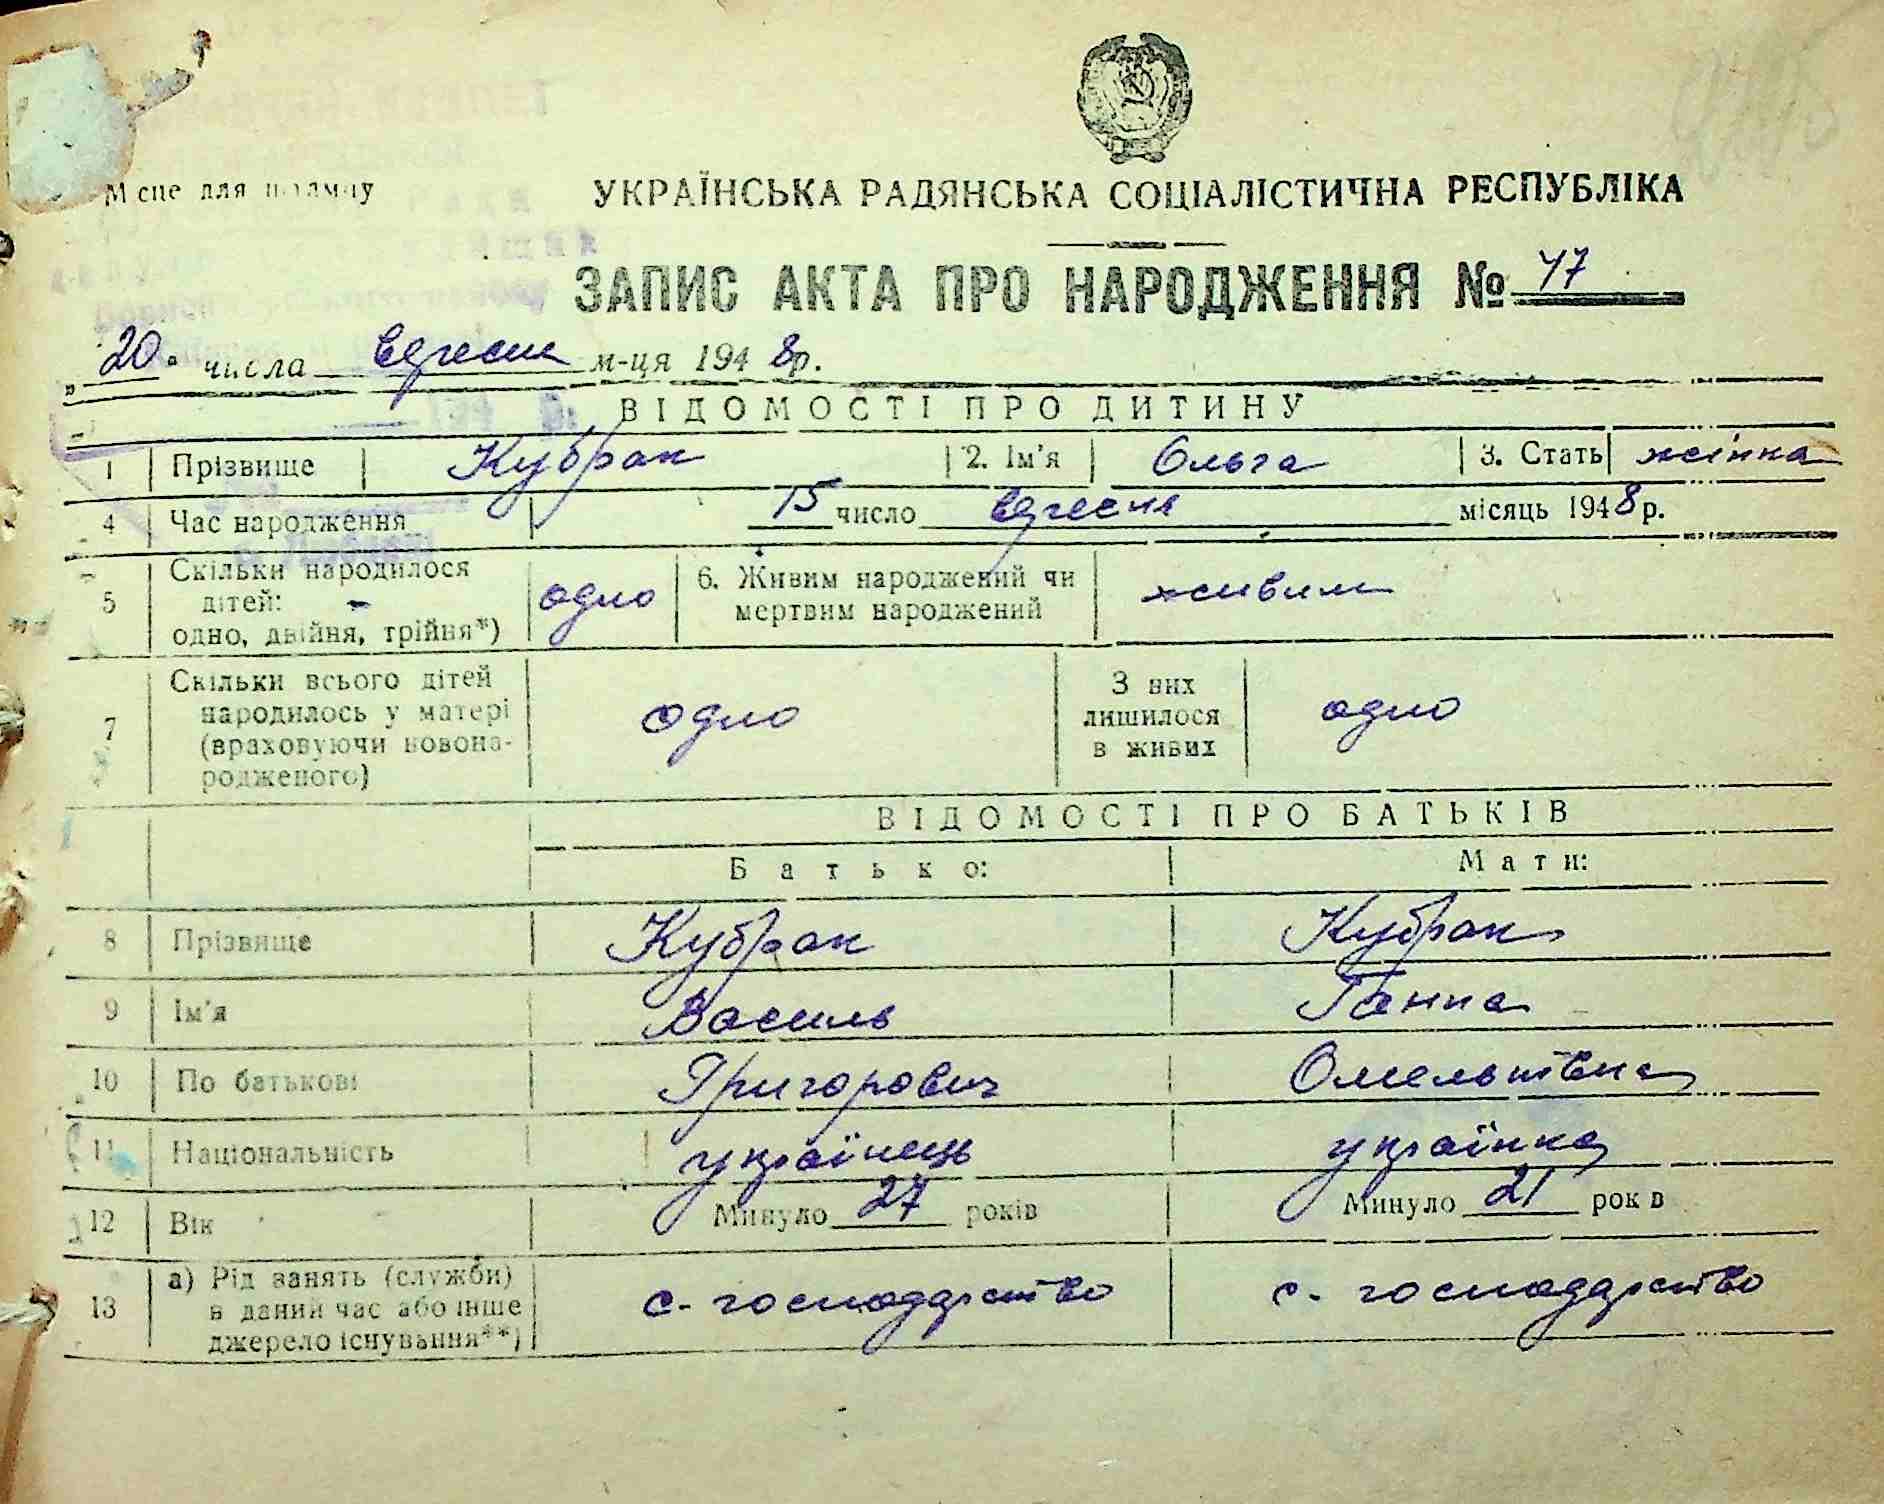 Місце для штампу
УКРАЇНСЬКА РАДЯНСЬКА СОЦІАЛІСТИЧНА РЕСПУБЛІКА
ЗАПИС АКТА ПРО НАРОДЖЕННЯ № 47
„20" числа вересня м-ця 1948 р.
ВІДОМОСТІ ПРО ДИТИНУ
1 Прізвище Кубрак 2. Ім'я Ольга 3. Стать жінка
4 Час народження 15 число вересня місяць 1948 р.
5 Скільки народилося дітей: одно, двійня, трійня*) одно 6. Живим народжений чи мертвим народжений живим
7 Скільки всього дітей народилось у матері (враховуючи новонародженого) одно З них лишилося в живих одно
ВІДОМОСТІ ПРО БАТЬКІВ
Батько: Мати:
8 Прізвище Кубрак Кубрак
9 Ім'я Василь Ганна
10 По батькові Григорович Омельківна
11 Національність українець українка
12 Вік Минуло 27 років Минуло 21 років
13 а) Рід занять (служби) в даний час або інше джерело існування**) с-господарство с-господарство